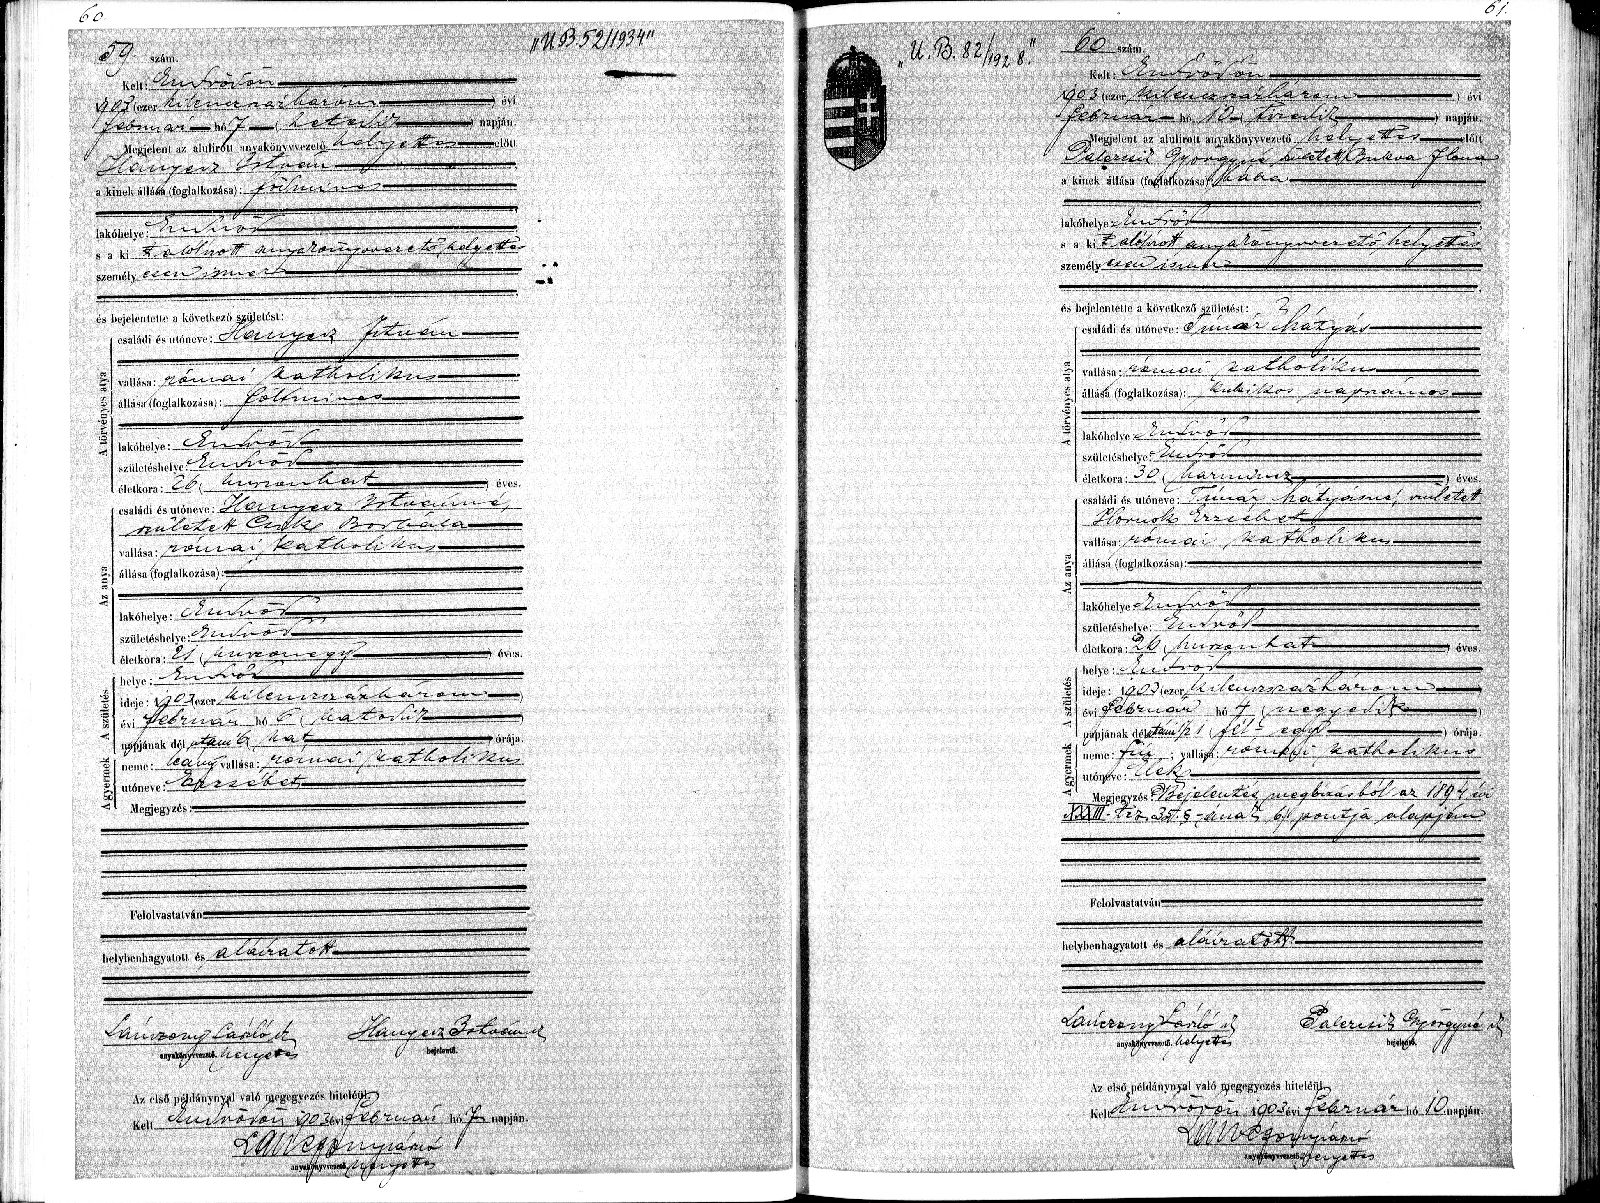 60
59 szám.
„U. B. 52/1934"
Kelt: Endrődön
1903 (ezer kilenczszázhárom) évi
február hó 7 (hetedik) napján.
Megjelent az alulirott anyakönyvvezető helyettes előtt
Hanyecz István
a kinek állása (foglalkozása): földmives
lakóhelye: Endrőd
s a ki t alólirott anyakönyvvezető helyettes
személyesen ismer
és bejelentette a következő születést:
A törvényes atya
családi és utóneve: Hanyecz István
vallása: római katholikus
állása (foglalkozása): földmives
lakóhelye: Endrőd
születéshelye: Endrőd
életkora: 26 (huszonhat) éves.
Az anya
családi és utóneve: Hanyecz Istvánné,
született Csuka Borbála
vallása: római katholikus
állása (foglalkozása):
lakóhelye: Endrőd
születéshelye: Endrőd
életkora: 21 (huszonegy) éves.
A születés
helye: Endrőd
ideje: 1903 (ezer kilenczszázhárom)
évi február hó 6 (hatodik)
napjának délutáni 6 hat órája.
A gyermek
neme: leány vallása: római katholikus
utóneve: Erzsébet
Megjegyzés:
Felolvastatván
helybenhagyatott és aláiratott
Hanyecz István
anyakönyvvezető helyettes
bejelentő.
Az első példánynyal való megegyezés hiteléül
Kelt Endrődön 1903 évi február hó 7 napján.
anyakönyvvezető helyettes
61.
„U. B. 82/1928."
60 szám.
Kelt: Endrődön
1903 (ezer kilenczszázhárom) évi
február hó 10 (tizedik) napján.
Megjelent az alulirott anyakönyvvezető helyettes előtt
Palercsik Györgyné, született Bukva Ilona
a kinek állása (foglalkozása) bába
lakóhelye: Endrőd
s a ki t alólirott anyakönyvvezető helyettes
személyesen ismer
és bejelentette a következő születést:
A törvényes atya
családi és utóneve: Timár Mátyás
vallása: római katholikus
állása (foglalkozása): kubikos napszámos
lakóhelye: Endrőd
születéshelye: Endrőd
életkora: 30 (harmincz) éves.
Az anya
családi és utóneve: Timár Mátyásné, született
Hornok Erzsébet
vallása: római katholikus
állása (foglalkozása):
lakóhelye: Endrőd
születéshelye: Endrőd
életkora: 26 (huszonhat) éves.
A születés
helye: Endrőd
ideje: 1903 (ezer kilenczszázhárom)
évi február hó 4 (negyedik)
napjának délutáni 1/2 1 (fél egy) órája.
A gyermek
neme: fiú; vallása: római katholikus
utóneve: Elek
Megjegyzés: Bejelentés megbizásból az 1894 évi
XXXIII. tcz 35. §-ának b/ pontja alapján
Felolvastatván
helybenhagyatott és aláiratott
Palercsik Györgyné
anyakönyvvezető helyettes
bejelentő.
Az első példánynyal való megegyezés hiteléül
Kelt Endrődön 1903 évi február hó 10 napján.
anyakönyvvezető helyettes